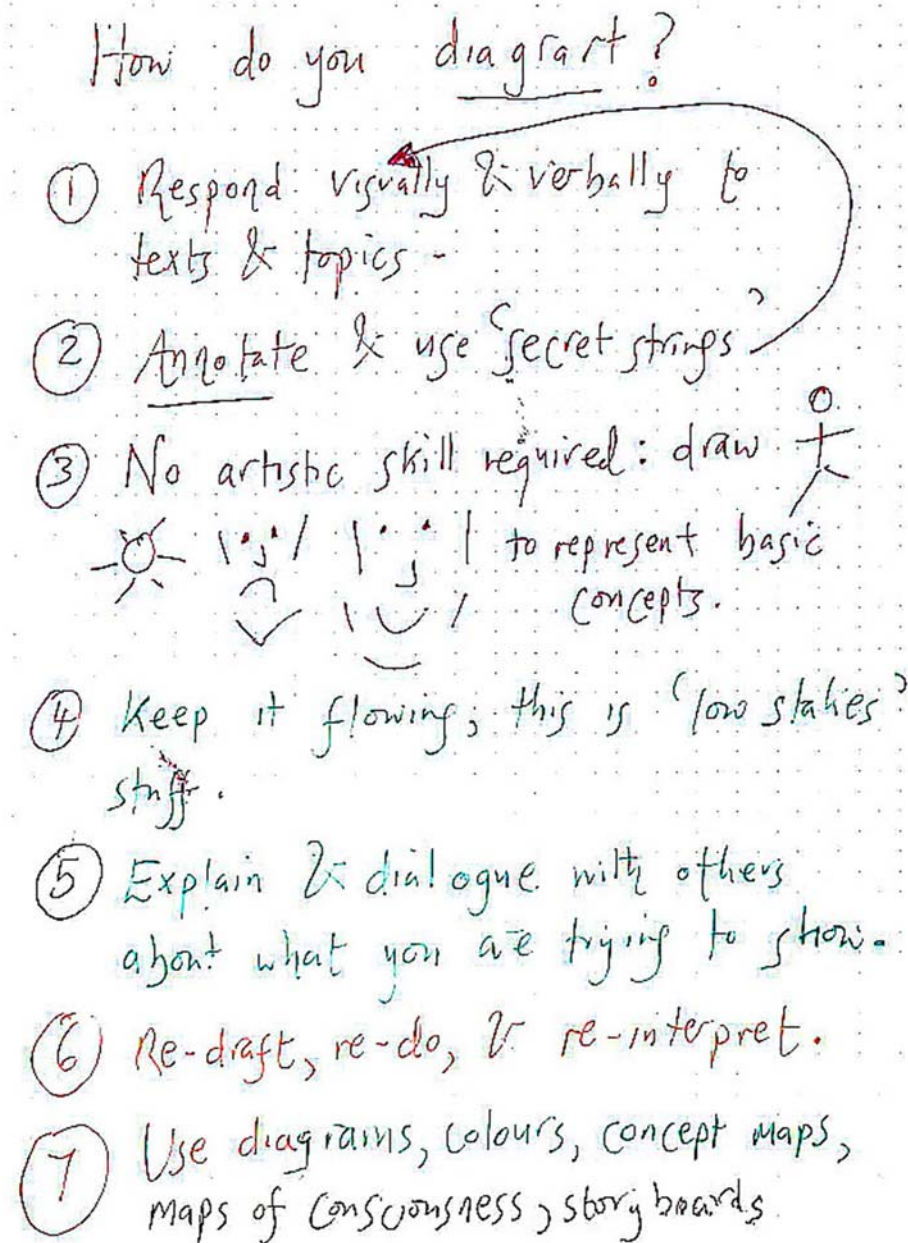 How do you diagrart?
① Respond visually & verbally to
texts & topics -
② Annotate & use ‘secret strings’
③ No artistic skill required: draw
to represent basic
concepts.
④ Keep it flowing; this is ‘low stakes’
stuff.
⑤ Explain & dialogue with others
about what you are trying to show.
⑥ Re-draft, re-do, & re-interpret.
⑦ Use diagrams, colours, concept maps,
maps of consciousness, storyboards